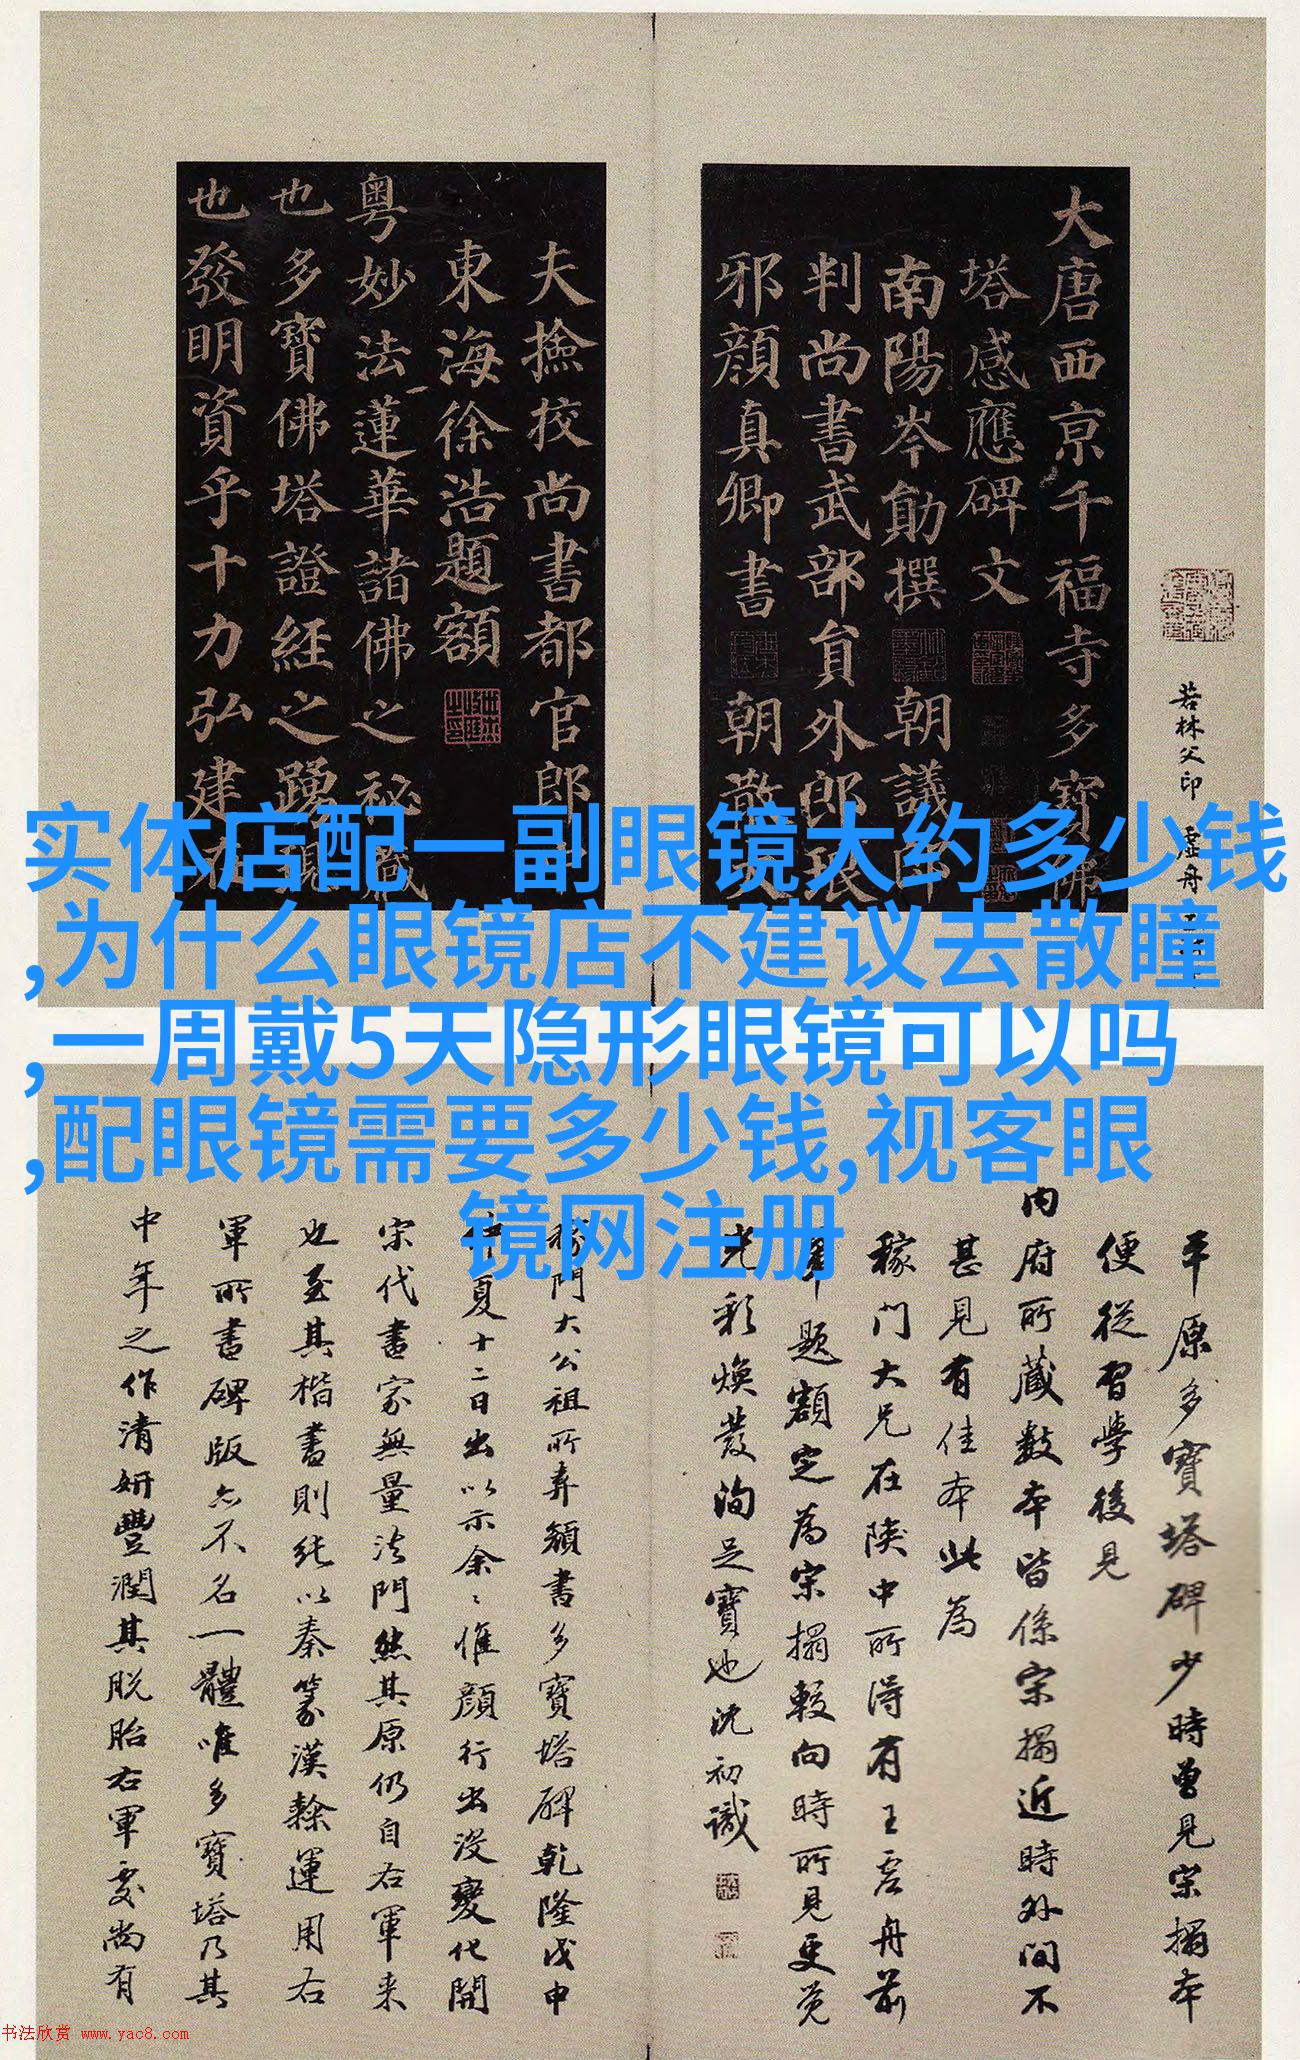 大唐西京千福寺多寶佛
塔感應碑文
南陽岑勛撰
朝議郎
判尚書武部員外郎琅
邪顏真卿書
朝散大
夫撿挍尚書都官郎中
東海徐浩題額
粵妙法蓮華諸佛之秘藏
也多寶佛塔證經之踴現
也發明資乎十力弘建在
若林父印
虛舟
实体店配一副眼镜大约多少钱
,为什么眼镜店不建议去散瞳
,一周戴5天隐形眼镜可以吗
,配眼镜需要多少钱,视客眼
镜网注册
平原多寶塔碑少時曾見宋搨本
便從習學後見
內府所藏數本皆係宋搨近時外間不
甚見有佳本此為
稼門大兄在陝中所得有王虛舟前
輩題額定為宋搨較向時所見更覺
光彩煥發洵足寶也沈初識
稼門大公祖所弆顏書多寶塔碑乾隆戊申
中夏十二日出以示余〻惟顏行出沒變化開
宋代書家無量法門然其原仍自右軍来
也至其楷書則純以秦篆漢隸運用右
軍所書碑版亦不名一體唯多寶塔乃其
中年之作清妍豐潤其脫胎右軍處尚有
书法欣赏 www.yac8.com